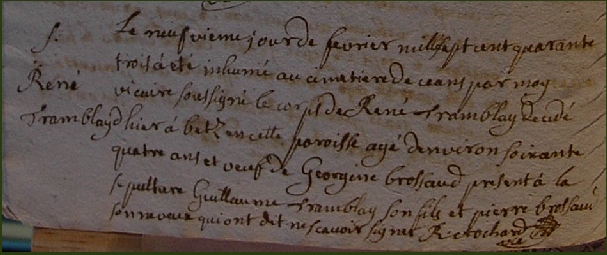 S.
René
Tramblay
Le neufvieme jour de fevrier mill sept cent quarante
trois à eté inhumé au cimetiere de ceans par moy
vicaire soussigné le corps de René Tramblay decedé
d'hier à betz en cette paroisse agé d'environ soixante
quatre ans et veuf de Georgine brossaud present à la
sepulture Guillaume Tramblay son fils et pierre brossaud
son neveu qui ont dit ne scavoir signer R. rochard
vic